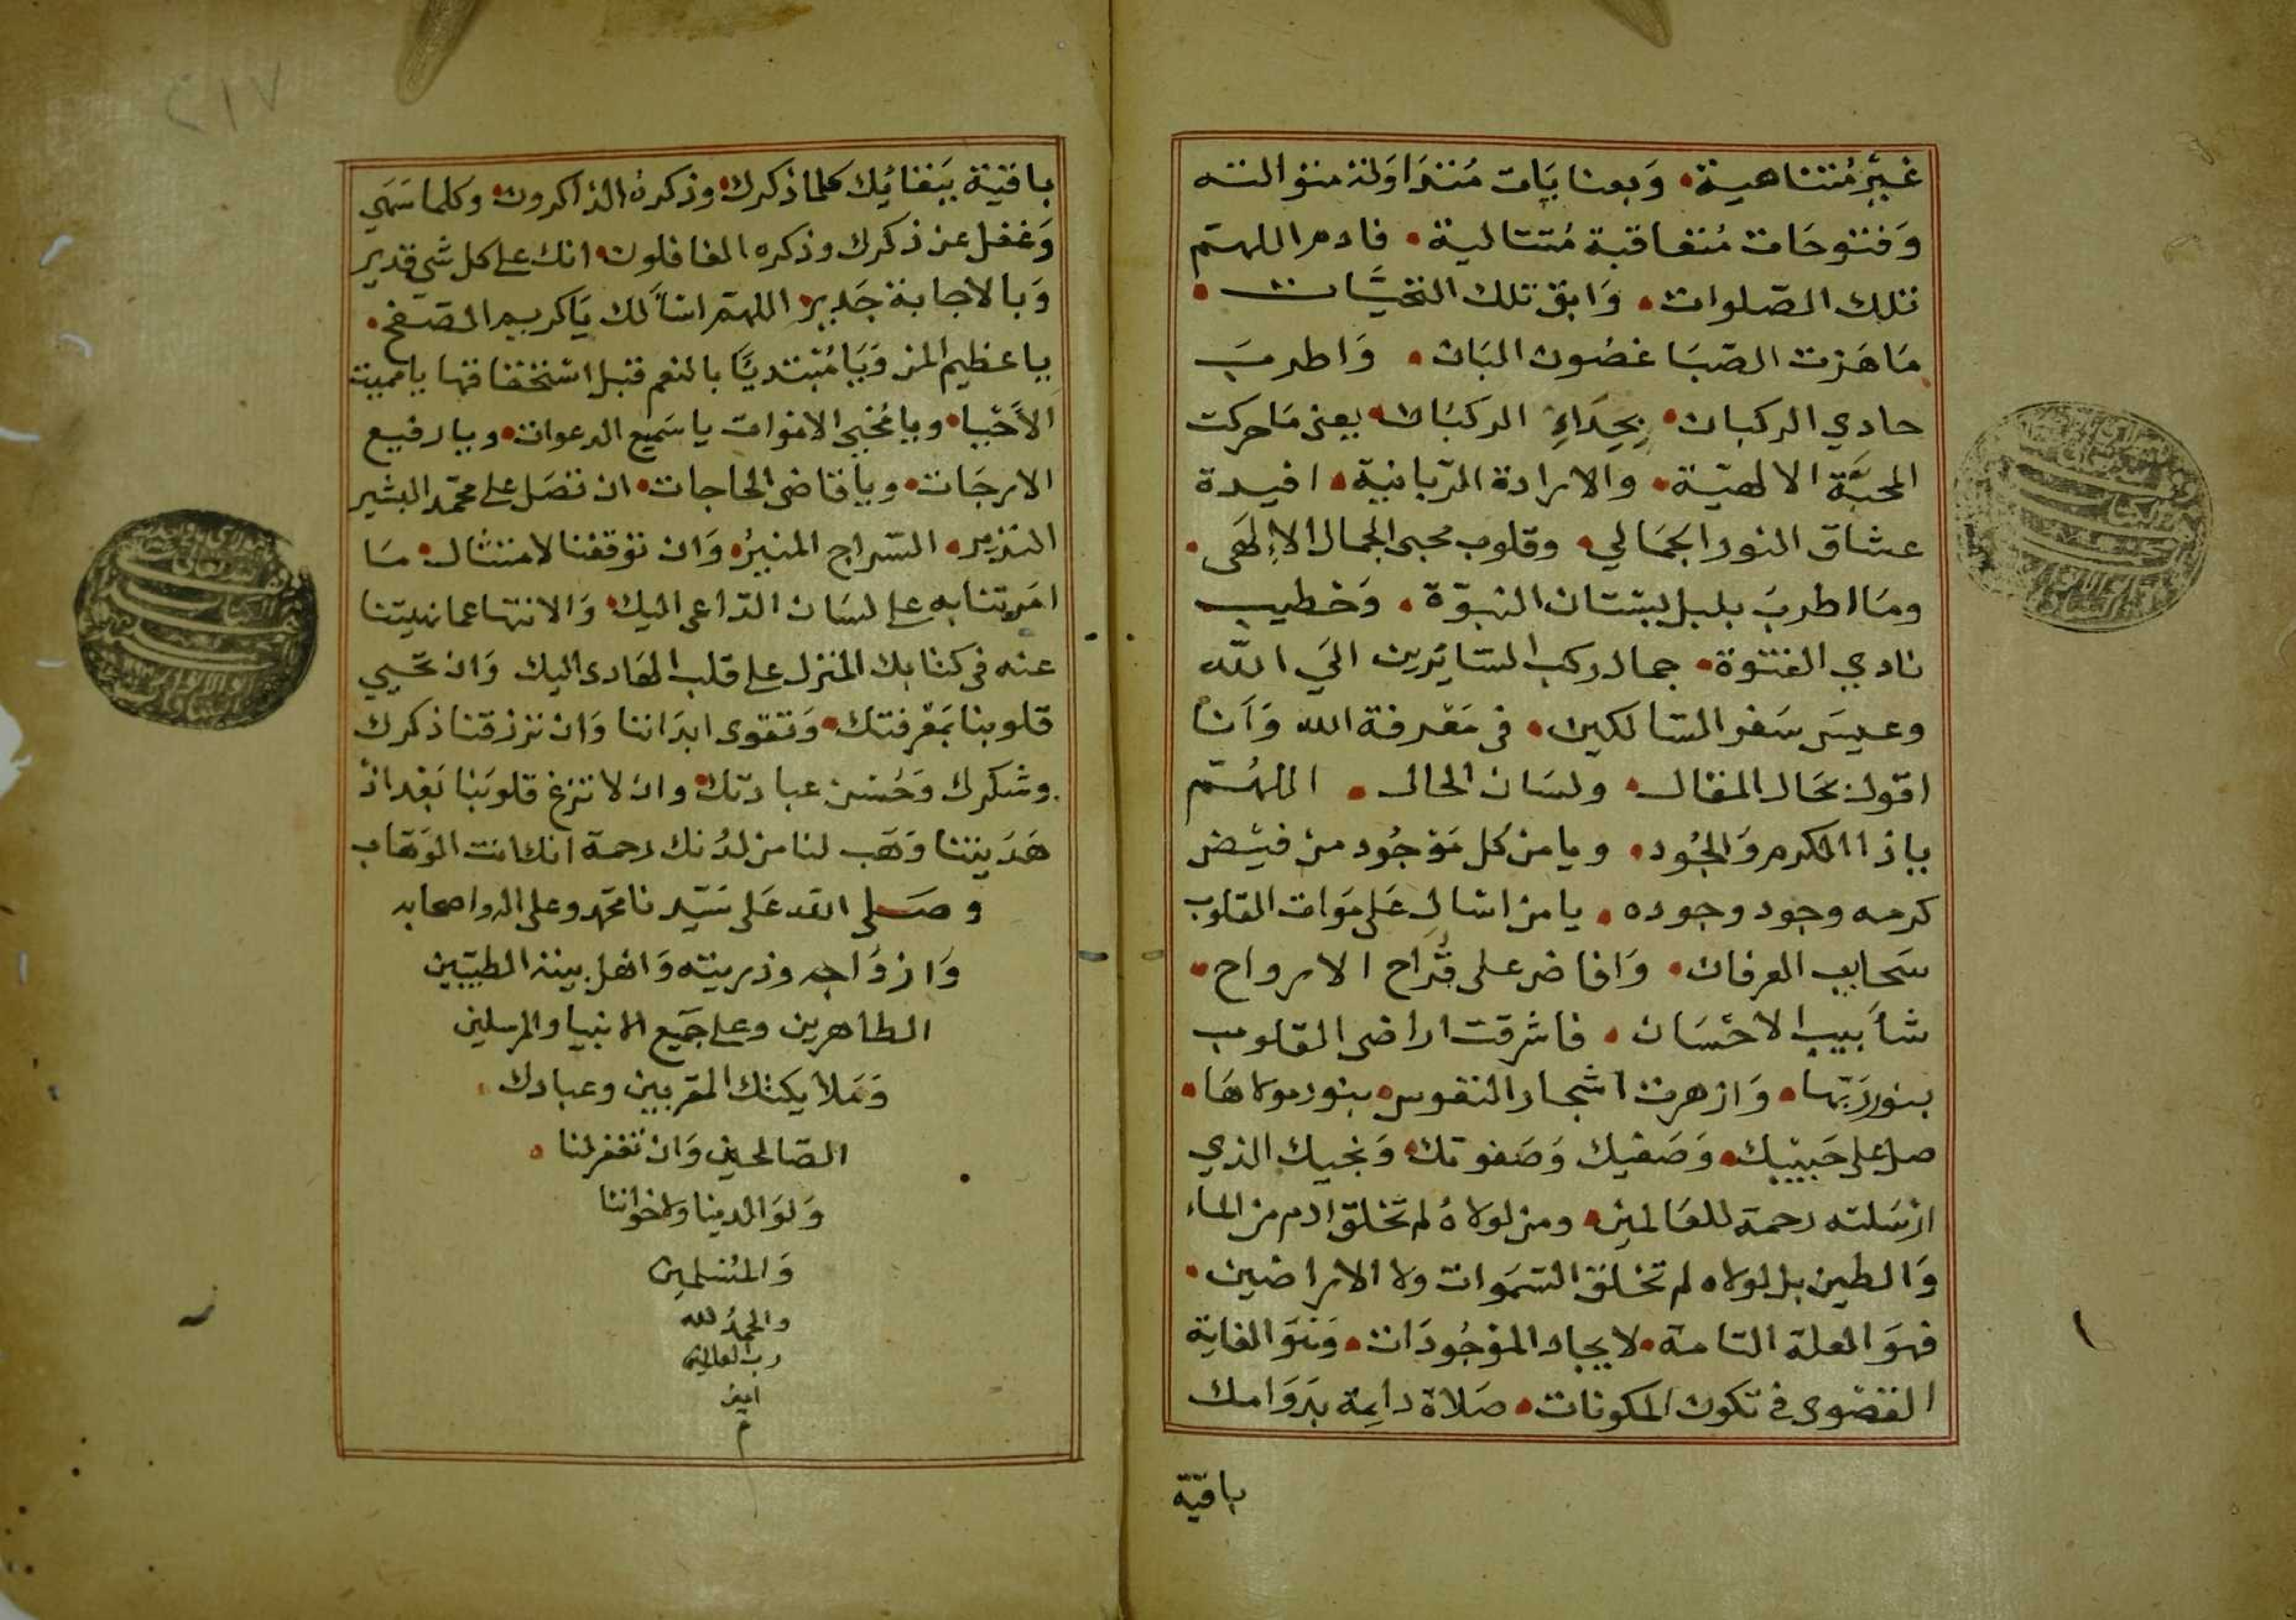 غير متناهية • وبعنايات متداولة متوالية
وفتوحات متعاقبة متتالية • فادم اللهم
تلك الصلوات • وابق تلك التحيات •
ما هزت الصبا غصون البان • واطرب
حادي الركبان • بحداء الركبان • يعنى ما حركت
المحبة الالهية • والارادة الربانية • افيدة
عشاق النور الجمالي • وقلوب محبى الجمال الإلهى •
وما اطرب بلبل بستان النبوة • وخطيب
نادي الفتوة • جمال ركب السائرين الى الله
وعيس سفر السالكين • فى معرفة الله وأنا
اقول بحال المقال • ولسان الحال • اللهم
ياذا الكرم والجود • ويا من كل موجود من فيض
كرمه وجود وجوده • يا من اسال على موات القلوب
سحايب العرفان • وافاض على قراح الارواح •
شأبيب الاحسان • فاشرقت اراضى القلوب
بنور ربها • وازهرت اشجار النفوس • بنور مولاها •
صل على حبيبك • وصفيك وصفوتك • ونجيك الذي
ارسلته رحمة للعالمين • ومن لولاه لم تخلق ادم من الماء
والطين بل لولاه لم تخلق السموات ولا الاراضين •
فهو العلة التامة • لايجاد الموجودات • وهو الغاية
القصوى فى تكون المكونات • صلاة دايمة بدوامك
باقية
٢١٧
باقية ببقائك كلما ذكرك • وذكره الذاكرون • وكلما سهى
وغفل عن ذكرك وذكره الغافلون • انك على كل شي قدير
وبالاجابة جدير • اللهم انا سألك يا كريم الصفح •
يا عظيم المن ويا مبتديا بالنعم قبل استحقاقها يا مميت
الأحيا • ويا محيى الاموات يا سميع الدعوات • ويا رفيع
الدرجات • ويا قاضى الحاجات • ان تصل على محمد البشير
النذير • السراج المنير • وان توقفنا لامتثال • ما
امرتنا به على لسان الداعى اليك • والانتها عما نهيتنا
عنه فى كتابك المنزل على قلب الهادى اليك وان تحيي
قلوبنا بمعرفتك • وتقوى ابداننا وان ترزقنا ذكرك
وشكرك وحسن عبادتك • وان لا تزغ قلوبنا بعد اذ
هديتنا وهب لنا من لدنك رحمة انك انت الوهاب
وصلى الله على سيدنا محمد وعلى اله واصحابه
وازواجه وذريته واهل بيته الطيبين
الطاهرين وعلى جميع الانبيا والمرسلين
وملايكتك المقربين وعبادك •
الصالحين وان تغفر لنا •
ولوالدينا ولاخواننا
والمسلمين
والحمد لله
رب العالمين
امين
م